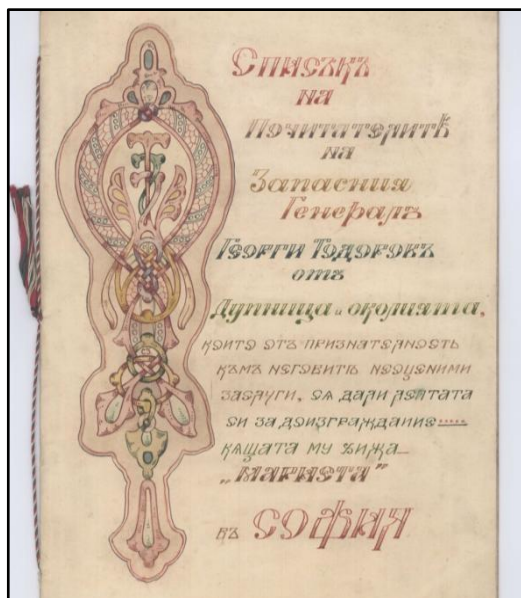 Списъкъ
на
Почитателитѣ
на
Запасния
Генералъ
Георги Тодоровъ
отъ
Дупница и околията,
които отъ признателность
къмъ неговитѣ неоценими
заслуги, сѫ дали лептата
си за доизграждание.....
кѫщата му вижа_
„МАРИЕТА"
въ СОФИЯ